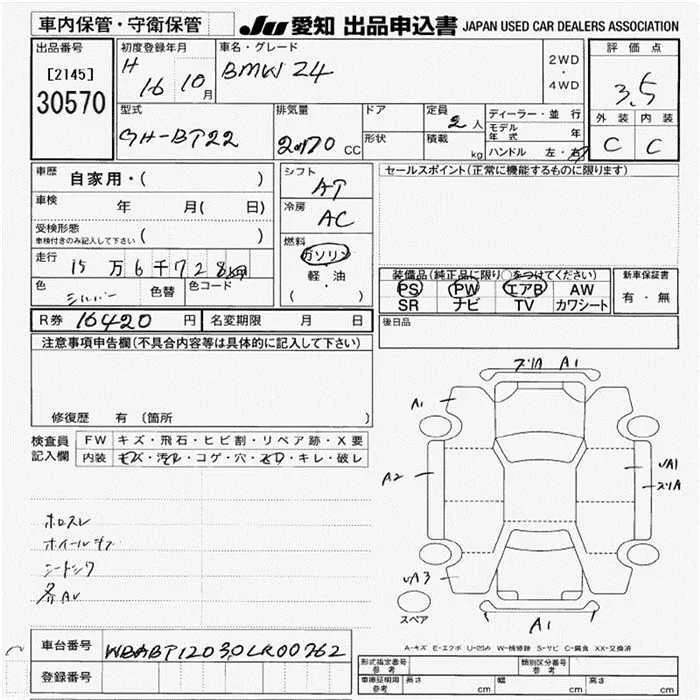 車内保管・守衛保管
JU 愛知 出品申込書 JAPAN USED CAR DEALERS ASSOCIATION
出品番号
[2145]
30570
初度登録年月
H 16 10月
車名・グレード
BMW Z4
2WD
・
4WD
評価点
3.5
外装 内装
C C
型式
GH-BT22
排気量
2170 CC
ドア
形状
定員
2人
積載
kg
ディーラー・並行
モデル年式 年
ハンドル 左・右
車歴
自家用・( )
車検
年 月( 日)
受検形態
車検付きのみ記入して下さい ( )
走行
15万6千728
色
シルバー
色替
色コード
シフト
AT
冷房
AC
燃料
ガソリン
軽・油
( )
セールスポイント(正常に機能するものに限ります)
装備品(純正品に限り○をつけてください)
PS PW エアB AW
SR ナビ TV カワシート
新車保証書
有・無
R券 16420 円
名変期限 月 日
後日品
注意事項申告欄(不具合内容等は具体的に記入して下さい)
修復歴 有 (箇所
検査員
記入欄
FW キズ・飛石・ヒビ割・リペア跡・X要
内装 キズ・汚れ・コゲ・穴・スレ・キレ・破レ
ホロスレ
ホイールキズ
シートシワ
各AU
ズリA A1
A1
A2
UA1
ズリA
UA3
A1
スペア
A-キズ E-エクボ U-凹み W-補修跡 S-サビ C-腐食 XX-交換済
車台番号
WBABT12030LR00762
登録番号
形式指定番号
参考
類別区分番号
参考
車庫証明用
参考
長さ cm
幅 cm
高さ cm